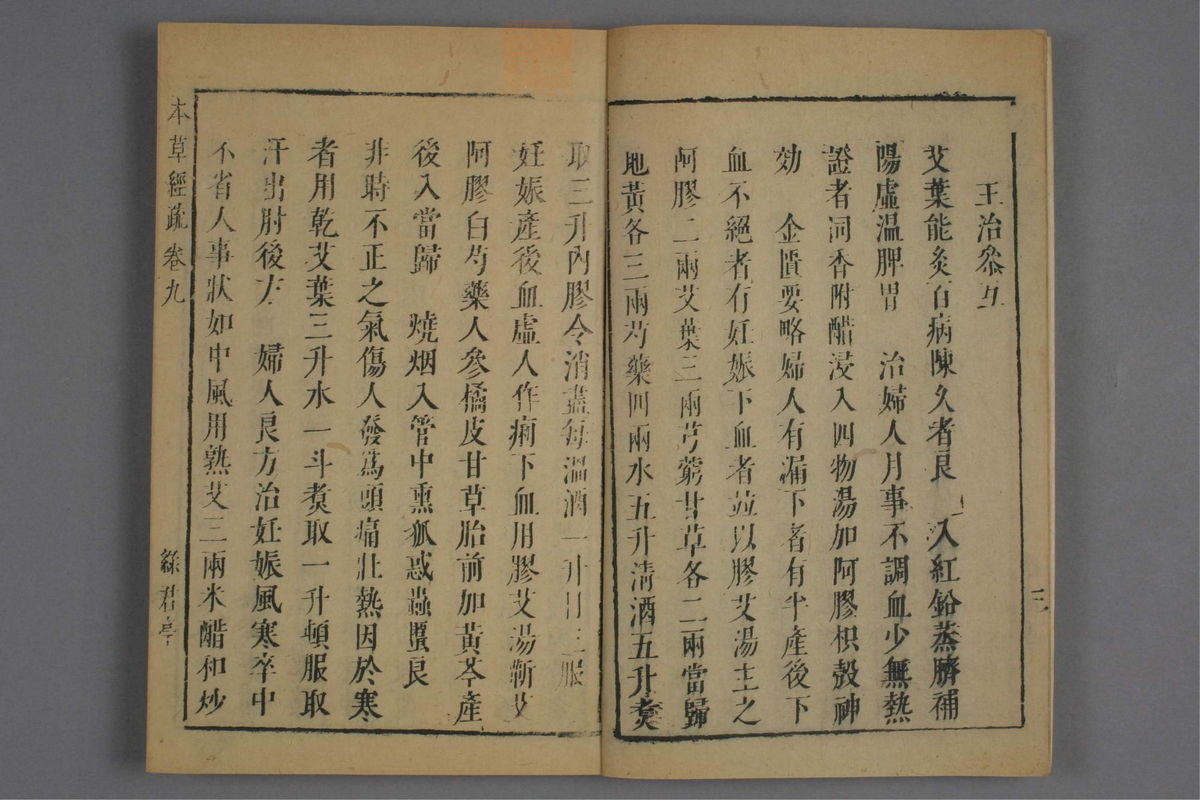 三
主治參互
艾葉能灸百病陳久者良　入紅鉛蒸臍補
陽虛温脾胃　治婦人月事不調血少無熱
證者同香附醋浸入四物湯加阿膠枳殼神
効　金匱要略婦人有漏下者有半產後下
血不絕者有妊娠下血者並以膠艾湯主之
阿膠二兩艾葉三兩芎藭甘草各二兩當歸
地黃各三兩芍藥四兩水五升清酒五升煑
取三升內膠令消盡每溫酒一升日三服
妊娠產後血虛人作痢下血用膠艾湯蘄艾
阿膠白芍藥人參橘皮甘草胎前加黃芩產
後入當歸　燒烟入管中熏狐惑蟲䘌良
非時不正之氣傷人發為頭痛壯熱因於寒
者用乾艾葉三升水一斗煑取一升頓服取
汗出肘後方　婦人良方治妊娠風寒卒中
不省人事狀如中風用熟艾三兩米醋和炒
本草經疏 卷九
綠君亭